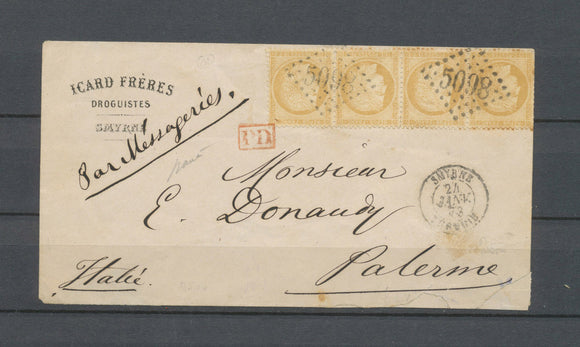 ICARD FRÈRES
DROGUISTES
SMYRNE
Par Messageries.
5098
5098
PD
SMYRNE
24
JANV.
Monsieur
E. Donaudy
Palerme
Italie